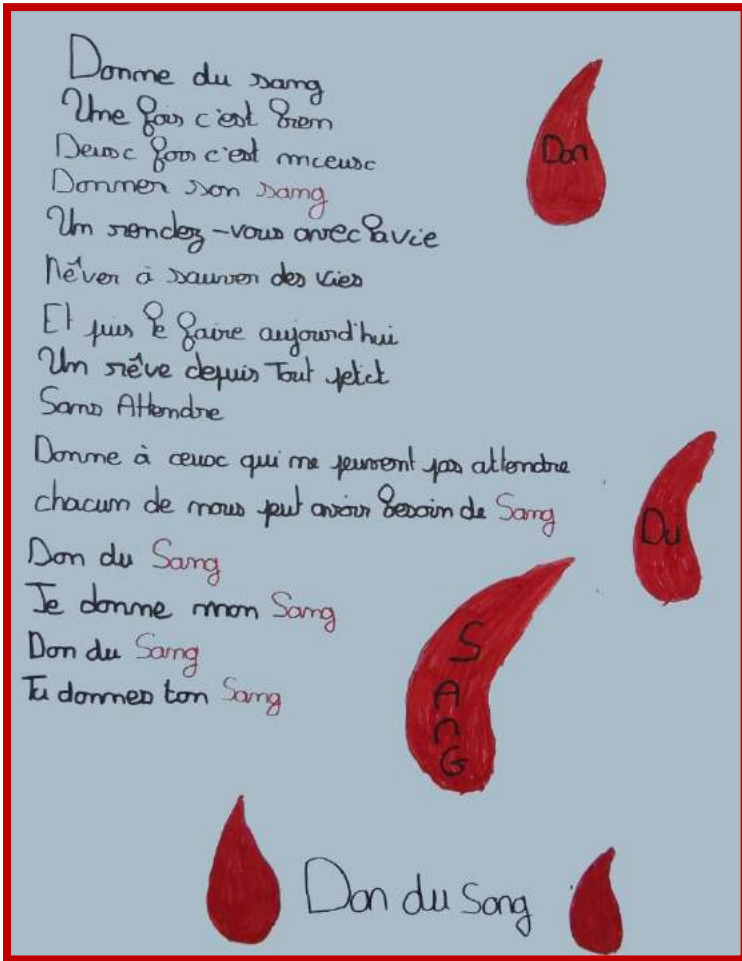 Donne du sang
Une fois c'est bien
Deux fois c'est mieux
Donner son sang
Un rendez-vous avec la vie
Rêver à sauver des vies
Et puis le faire aujourd'hui
Un rêve depuis Tout petit
Sans Attendre
Donne à ceux qui ne peuvent pas attendre
chacun de nous peut avoir besoin de Sang
Don du Sang
Je donne mon Sang
Don du Sang
Tu donnes ton Sang
Don
Du
SAnG
Don du Sang